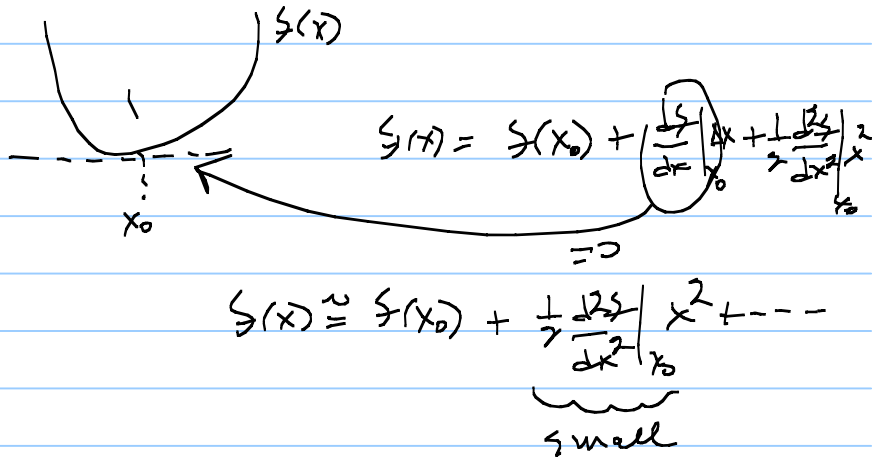 f(x)
f(x) = f(x₀) + df/dx|x₀ Δx + 1/2 d²f/dx²|x₀ x²
x₀
=0
f(x) ≅ f(x₀) + 1/2 d²f/dx²|x₀ x² + ----
small